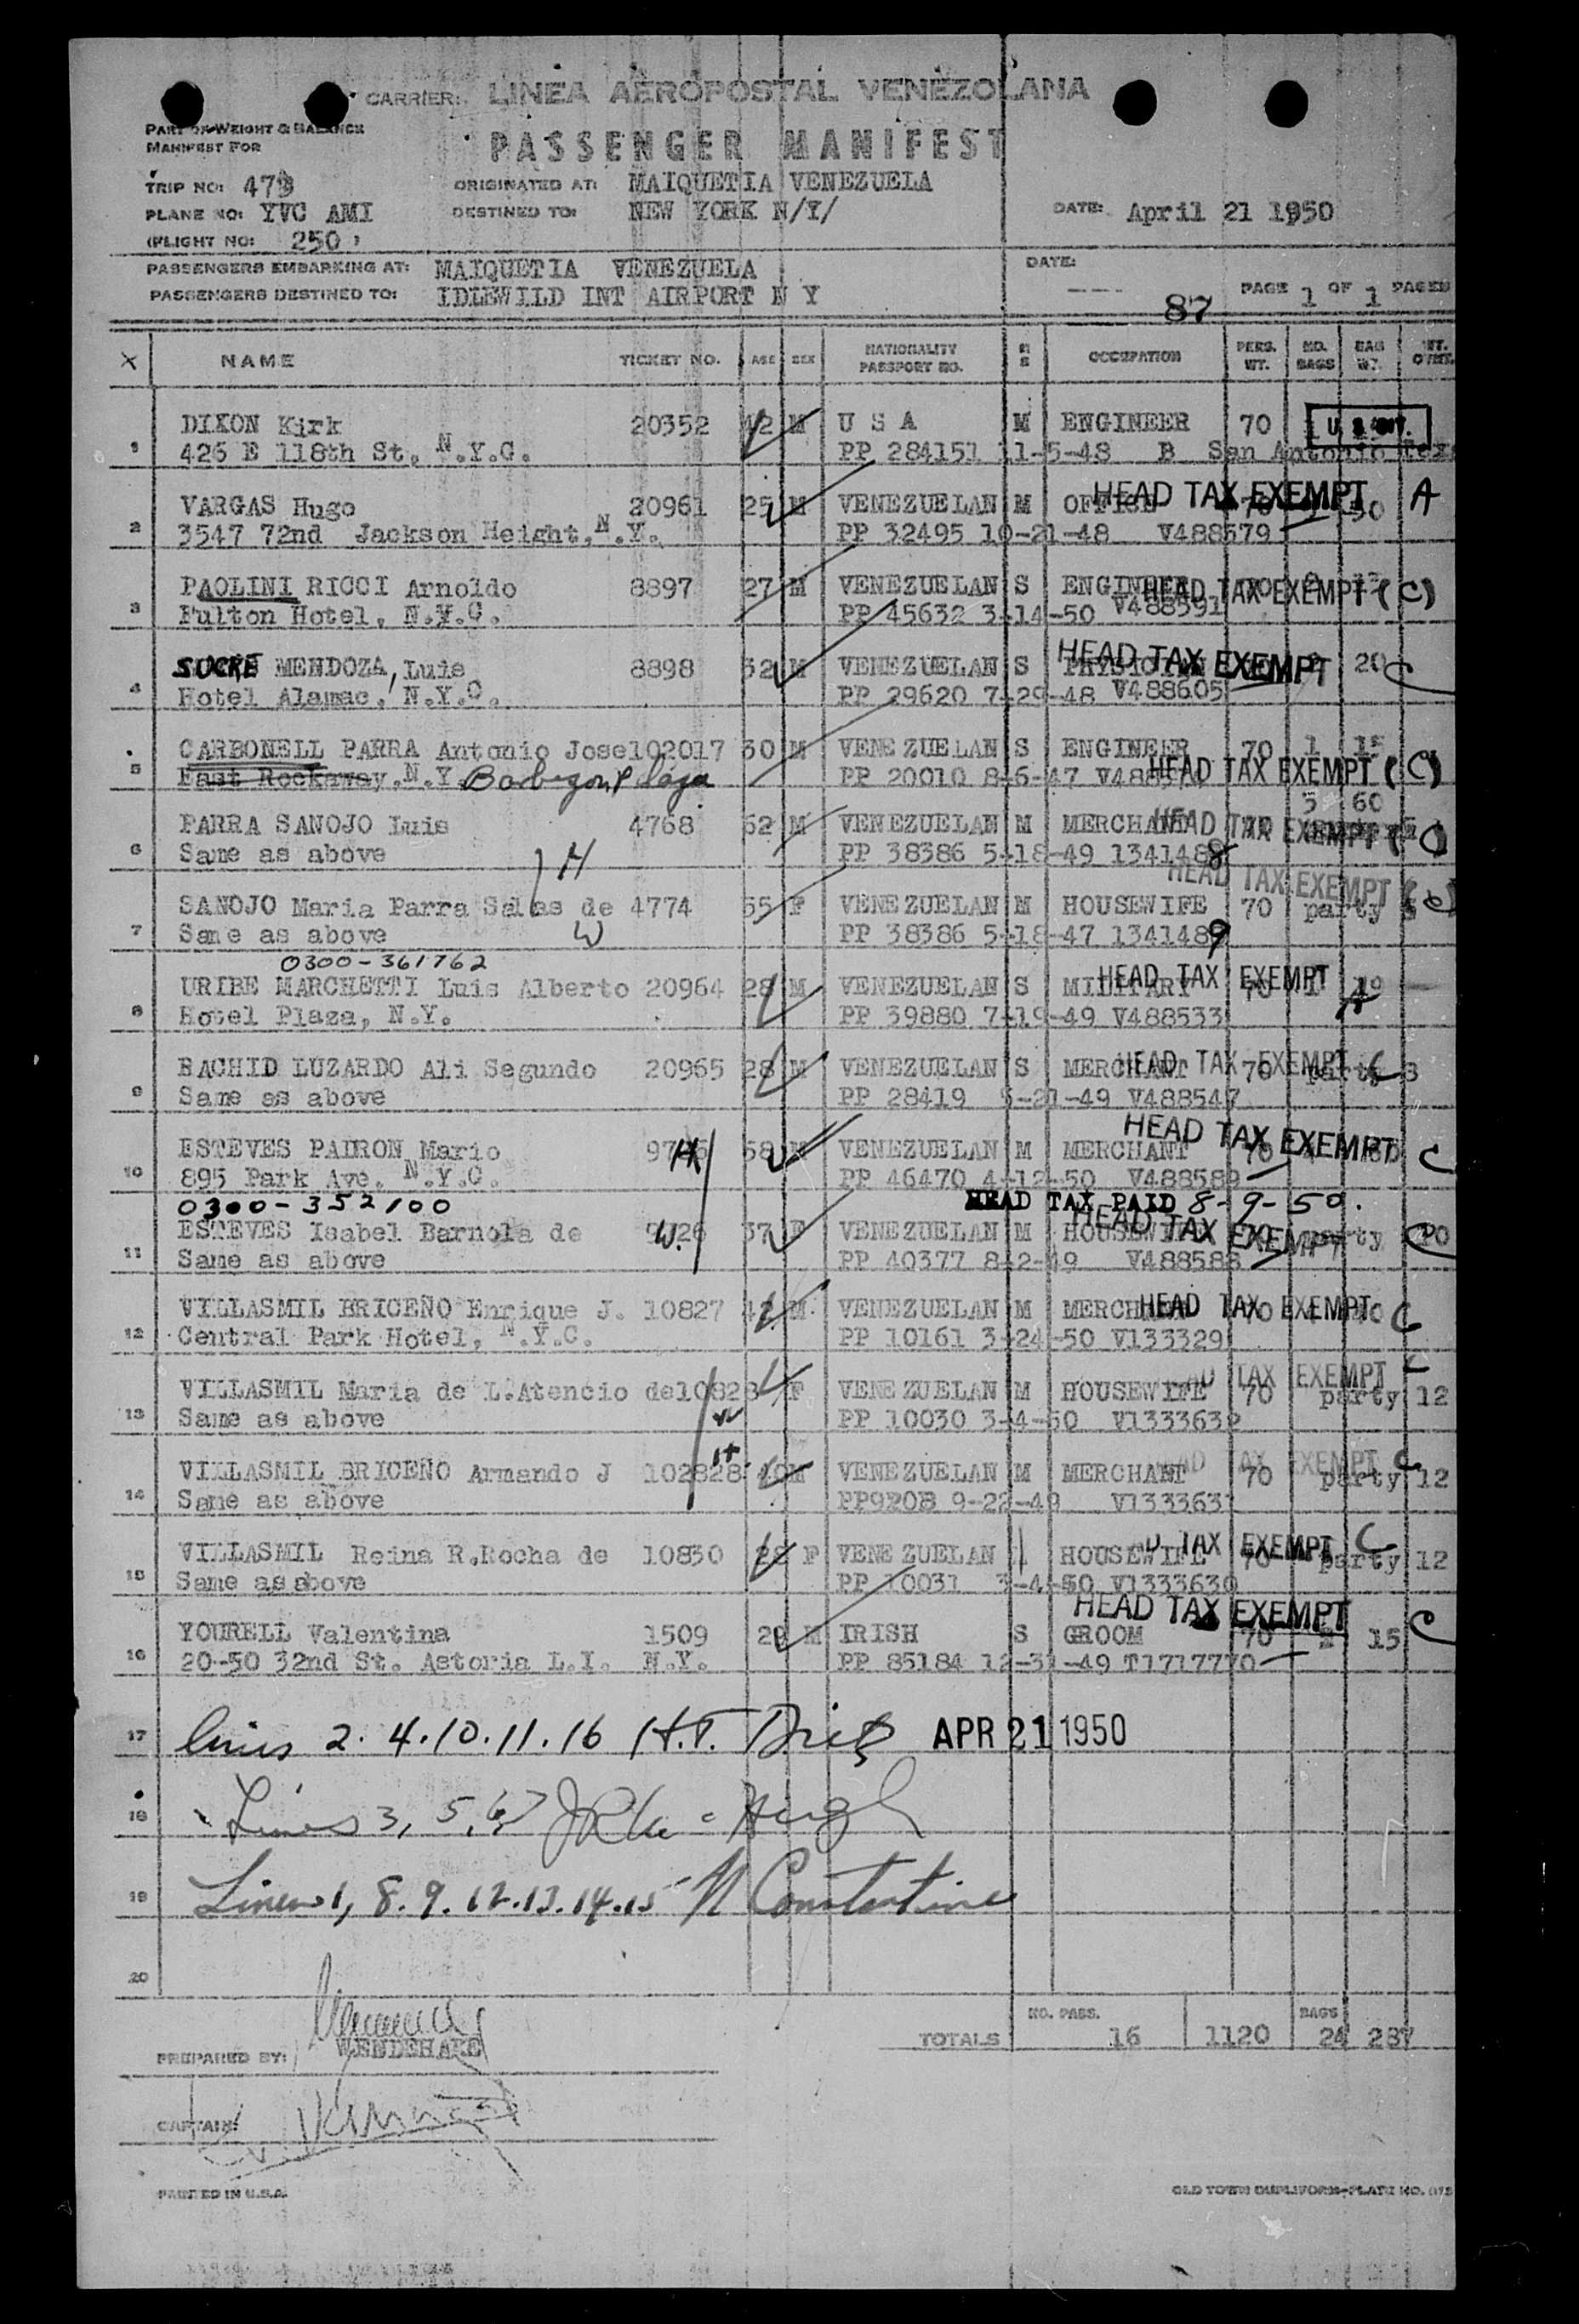 CARRIER: LINEA AEROPOSTAL VENEZOLANA
PART OF WEIGHT & BALANCE
MANIFEST FOR
PASSENGER MANIFEST
TRIP NO: 479 ORIGINATED AT: MAIQUETIA VENEZUELA
PLANE NO: YVC AMI DESTINED TO: NEW YORK N/Y/ DATE: April 21 1950
(FLIGHT NO: 250)
PASSENGERS EMBARKING AT: MAIQUETIA VENEZUELA DATE:
PASSENGERS DESTINED TO: IDLEWILD INT AIRPORT N Y --- PAGE 1 OF 1 PAGES
87
X NAME TICKET NO. AGE SEX NATIONALITY PASSPORT NO. OCCUPATION PERS. WT. NO. BAGS BAG WT.
1 DIXON Kirk 20352 42 M U S A M ENGINEER 70
426 E 118th St. N.Y.C. PP 284151 11-5-48 B San Antonio Tex
2 VARGAS Hugo 20961 25 M VENEZUELAN M HEAD TAX EXEMPT A
3547 72nd Jackson Height, N.Y. PP 32495 10-21-48 V488579
3 PAOLINI RICCI Arnoldo 8897 27 M VENEZUELAN S ENGINEER HEAD TAX EXEMPT (C)
Fulton Hotel, N.Y.C. PP 45632 3-14-50 V488591
4 SUCRE MENDOZA, Luis 8898 52 M VENEZUELAN S PHYSICIAN HEAD TAX EXEMPT 20 C
Hotel Alamac, N.Y.C. PP 29620 7-29-48 V488605
5 CARBONELL PARRA Antonio Jose 102017 30 M VENEZUELAN S ENGINEER 70 1
East Rockaway, N.Y. PP 20010 8-6-47 HEAD TAX EXEMPT (C)
3 60
6 PARRA SANOJO Luis 4768 62 M VENEZUELAN M MERCHANT HEAD TAX EXEMPT (C)
Same as above H PP 38386 5-18-49 1341488
HEAD TAX EXEMPT
7 SANOJO Maria Parra Salas de 4774 55 F VENEZUELAN M HOUSEWIFE 70 party
Same as above W PP 38386 5-18-47 1341489
0300-361762
8 URIBE MARCHETTI Luis Alberto 20964 28 M VENEZUELAN S MILITARY HEAD TAX EXEMPT 19
Hotel Plaza, N.Y. PP 39880 7-19-49 V488533
9 RACHID LUZARDO Ali Segundo 20965 28 M VENEZUELAN S MERCHANT HEAD TAX EXEMPT 70 party C 3
Same as above PP 28419 5-21-49 V488547
10 ESTEVES PAIRON Mario H 58 M VENEZUELAN M MERCHANT HEAD TAX EXEMPT 70 C
895 Park Ave. N.Y.C. PP 46470 4-12-50 V488589
0300-352100 HEAD TAX PAID 8-9-50.
11 ESTEVES Isabel Barnola de W. 37 F VENEZUELAN M HOUSEWIFE HEAD TAX EXEMPT party
Same as above PP 40377 8-2-49 V488588
12 VILLASMIL BRICEÑO Enrique J. 10827 42 M VENEZUELAN M MERCHANT HEAD TAX EXEMPT C
Central Park Hotel, N.Y.C. PP 10161 3-24-50 V133329
13 VILLASMIL Maria de L.Atencio de 10828 F VENEZUELAN M HOUSEWIFE TAX EXEMPT C 70 party 12
Same as above W PP 10030 3-4-50 V1333632
14 VILLASMIL BRICEÑO Armando J 102828 40 M VENEZUELAN M MERCHANT TAX EXEMPT C 70 party 12
Same as above PP920B 9-22-49 V1333631
15 VILLASMIL Reina R.Rocha de 10830 28 F VENEZUELAN HOUSEWIFE TAX EXEMPT C 70 party 12
Same as above PP 10031 3-4-50 V1333630
HEAD TAX EXEMPT C
16 YOURELL Valentina 1509 29 M IRISH S GROOM 70 2 15
20-50 32nd St. Astoria L.I. N.Y. PP 85184 12-31-49 T1717770
17 lines 2. 4. 10. 11. 16 H.T. APR 21 1950
18 Lines 3, 5, 6, 7
19 Lines 1, 8. 9. 12. 13. 14. 15 Constantine
20
NO. PASS. BAGS
TOTALS 16 1120 24 287
PREPARED BY: WENDEHAKE
CAPTAIN:
PRINTED IN U.S.A. OLD TOWN DUPLIFORM-PLATE NO.